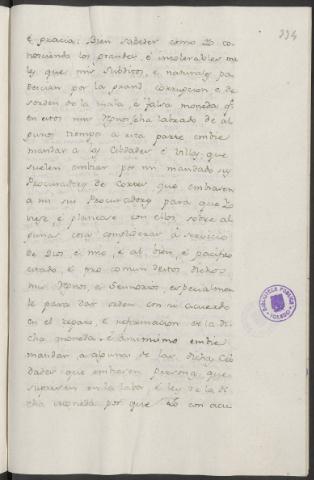 334
é gracia: Bien sabedes como Yo co-
nosciendo los grandes, é intolerables ma-
les que mis Subditos, é naturales pa-
decian por la grand corrupcion, e de-
sorden de la mala, é falsa moneda qe
en estos mis Reynos se ha labrado de al-
gunos tiempos a esta parte embie
mandar a las Cibdades, é Villas que
suelen embiar por mi mandado sus
Procuradores de Cortes que embiasen
a mi sus Procuradores para que Yo
viese, é platicase con ellos sobre al-
gunas cosas complideras á servicio
de Dios, é mio, e al bien, é pacifico
estado, é pro comun destos dichos
mis Reynos, é Señorios, especialmen-
te para dar orden con su acuerdo
en el reparo, é reformacion de la di-
cha moneda: é ansimismo embie
mandar a algunas de las dichas Cib-
dades que embiasen personas que
supiesen en la labor é ley de la di-
cha moneda por que Yo con acu-
BIBLIOTECA PUBLICA
TOLEDO